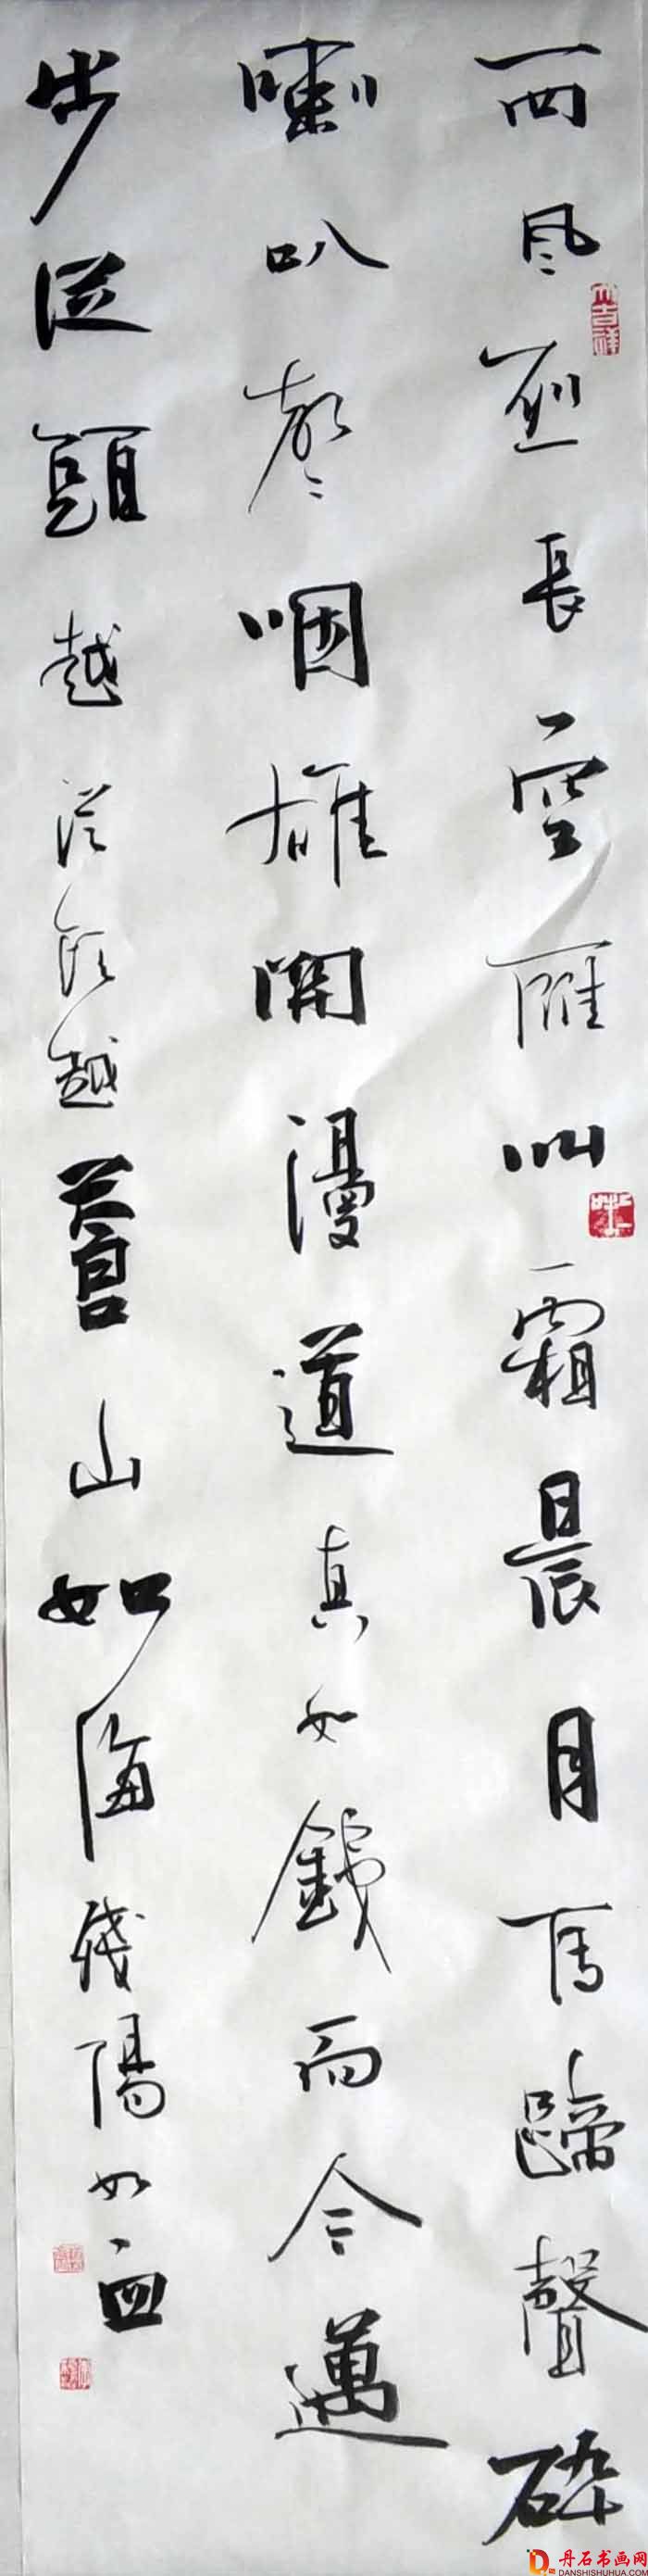 西风烈長空雁叫霜晨月馬蹄聲碎
喇叭声咽雄関漫道真如鐵而今邁
步從頭越從頭越蒼山如海殘陽如血
吉祥
丹石书画网
DANSHISHUHUA.COM